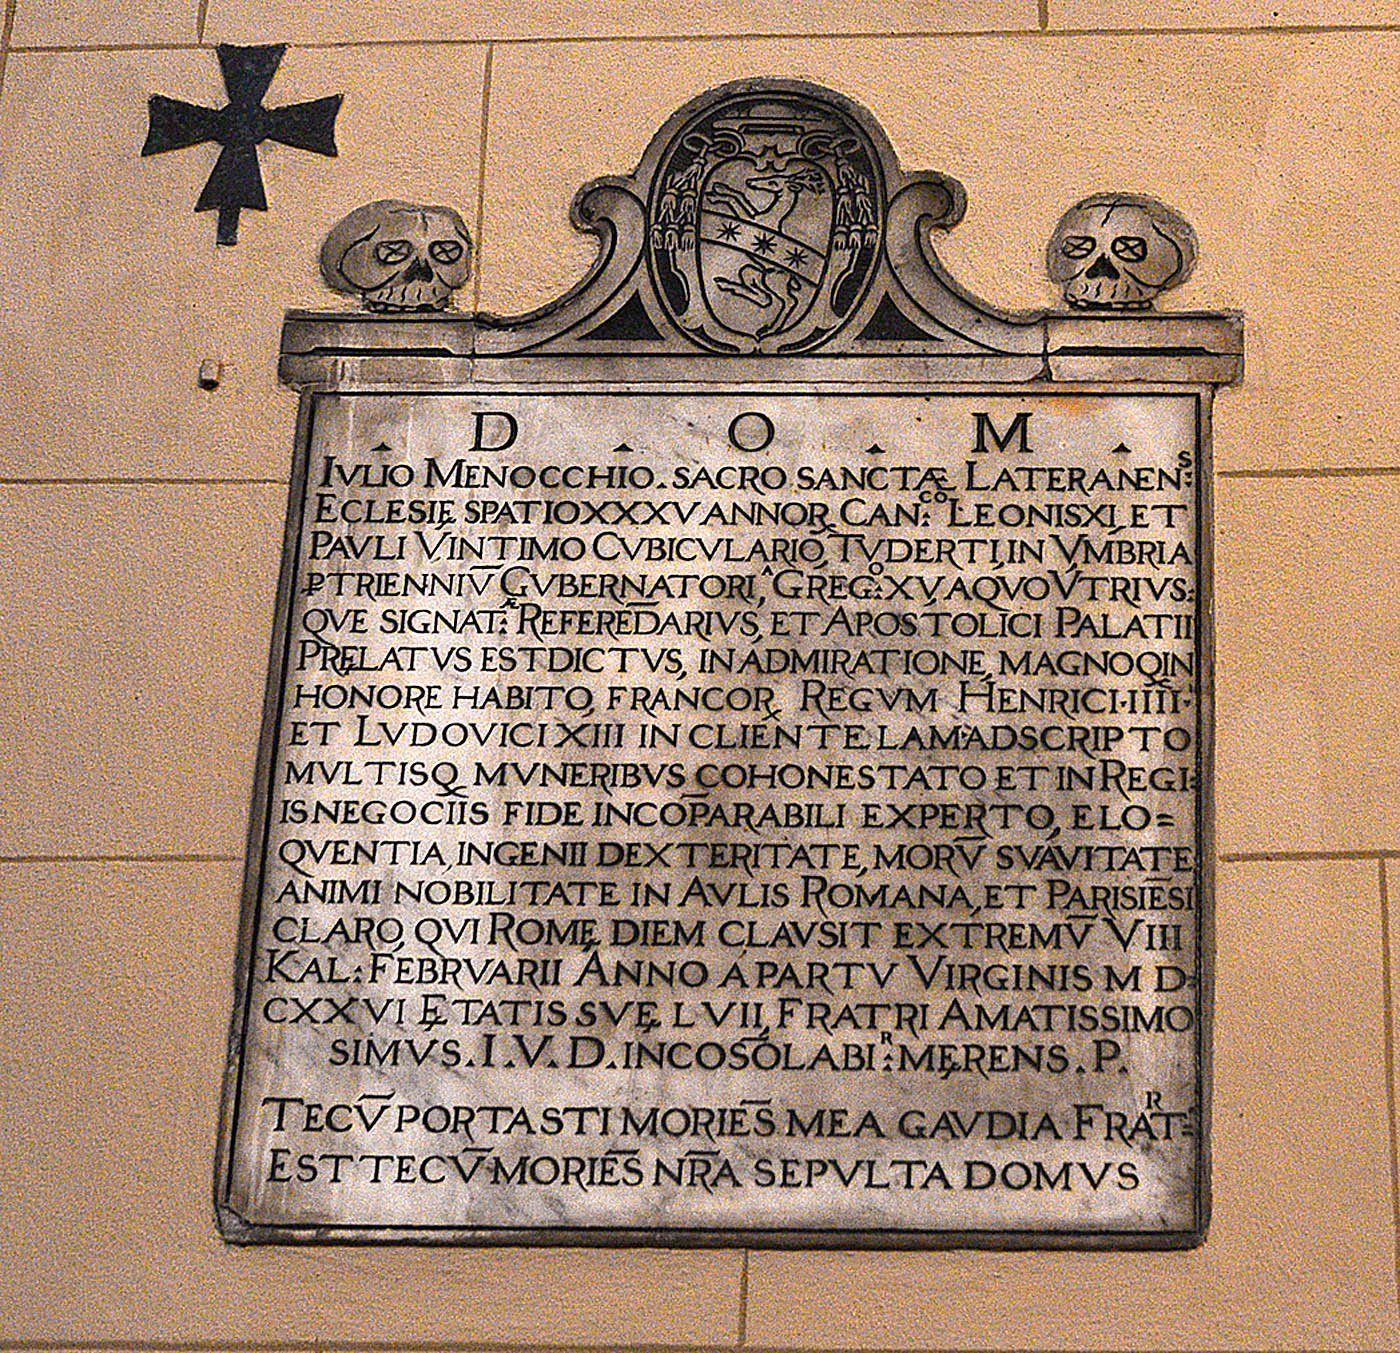 D O M
IVLIO MENOCCHIO. SACRO SANCTÆ LATERANEN:S
ECLESIĘ SPATIO XXXV ANNOR CAN:CO LEONIS XI, ET
PAVLI V, INTIMO CVBICVLARIO, TVDERTI, IN VMBRIA
PTRIENNIV̄ GVBERNATORI, A GREG:O XV, A QVO VTRIVS:
QVE SIGNAT:Æ REFERĒDARIVS, ET APOSTOLICI PALATII
PRĘLATVS EST DICTVS, IN ADMIRATIONE, MAGNOQ IN
HONORE HABITO, FRANCOR REGVM HENRICI·IIII·
ET LVDOVICI XIII IN CLIĒNTELAM ADSCRIPTO
MVLTISQ MVNERIBVS COHONESTATO ET IN REGI:
IS NEGOCIIS FIDE INCOP̄ARABILI EXPERTO, ELO=
QVENTIA, INGENII DEXTERITATE, MORV̄ SVAVITATE
ANIMI NOBILITATE IN AVLIS ROMANA, ET PARISIĒSI
CLARO, QVI ROMĘ DIEM CLAVSIT EXTREMV̄ VIII
KAL: FEBRVARII ANNO A PARTV VIRGINIS M D:
CXXVI ĘTATIS SVĘ LVII, FRATRI AMATISSIMO
SIMVS. I. V. D. INCOSŌLABI:R MĘRENS. P.
TECV̄ PORTASTI MORIĒS MEA GAVDIA FRAT:R
EST TECV̄ MORIĒS NR̄A SEPVLTA DOMVS